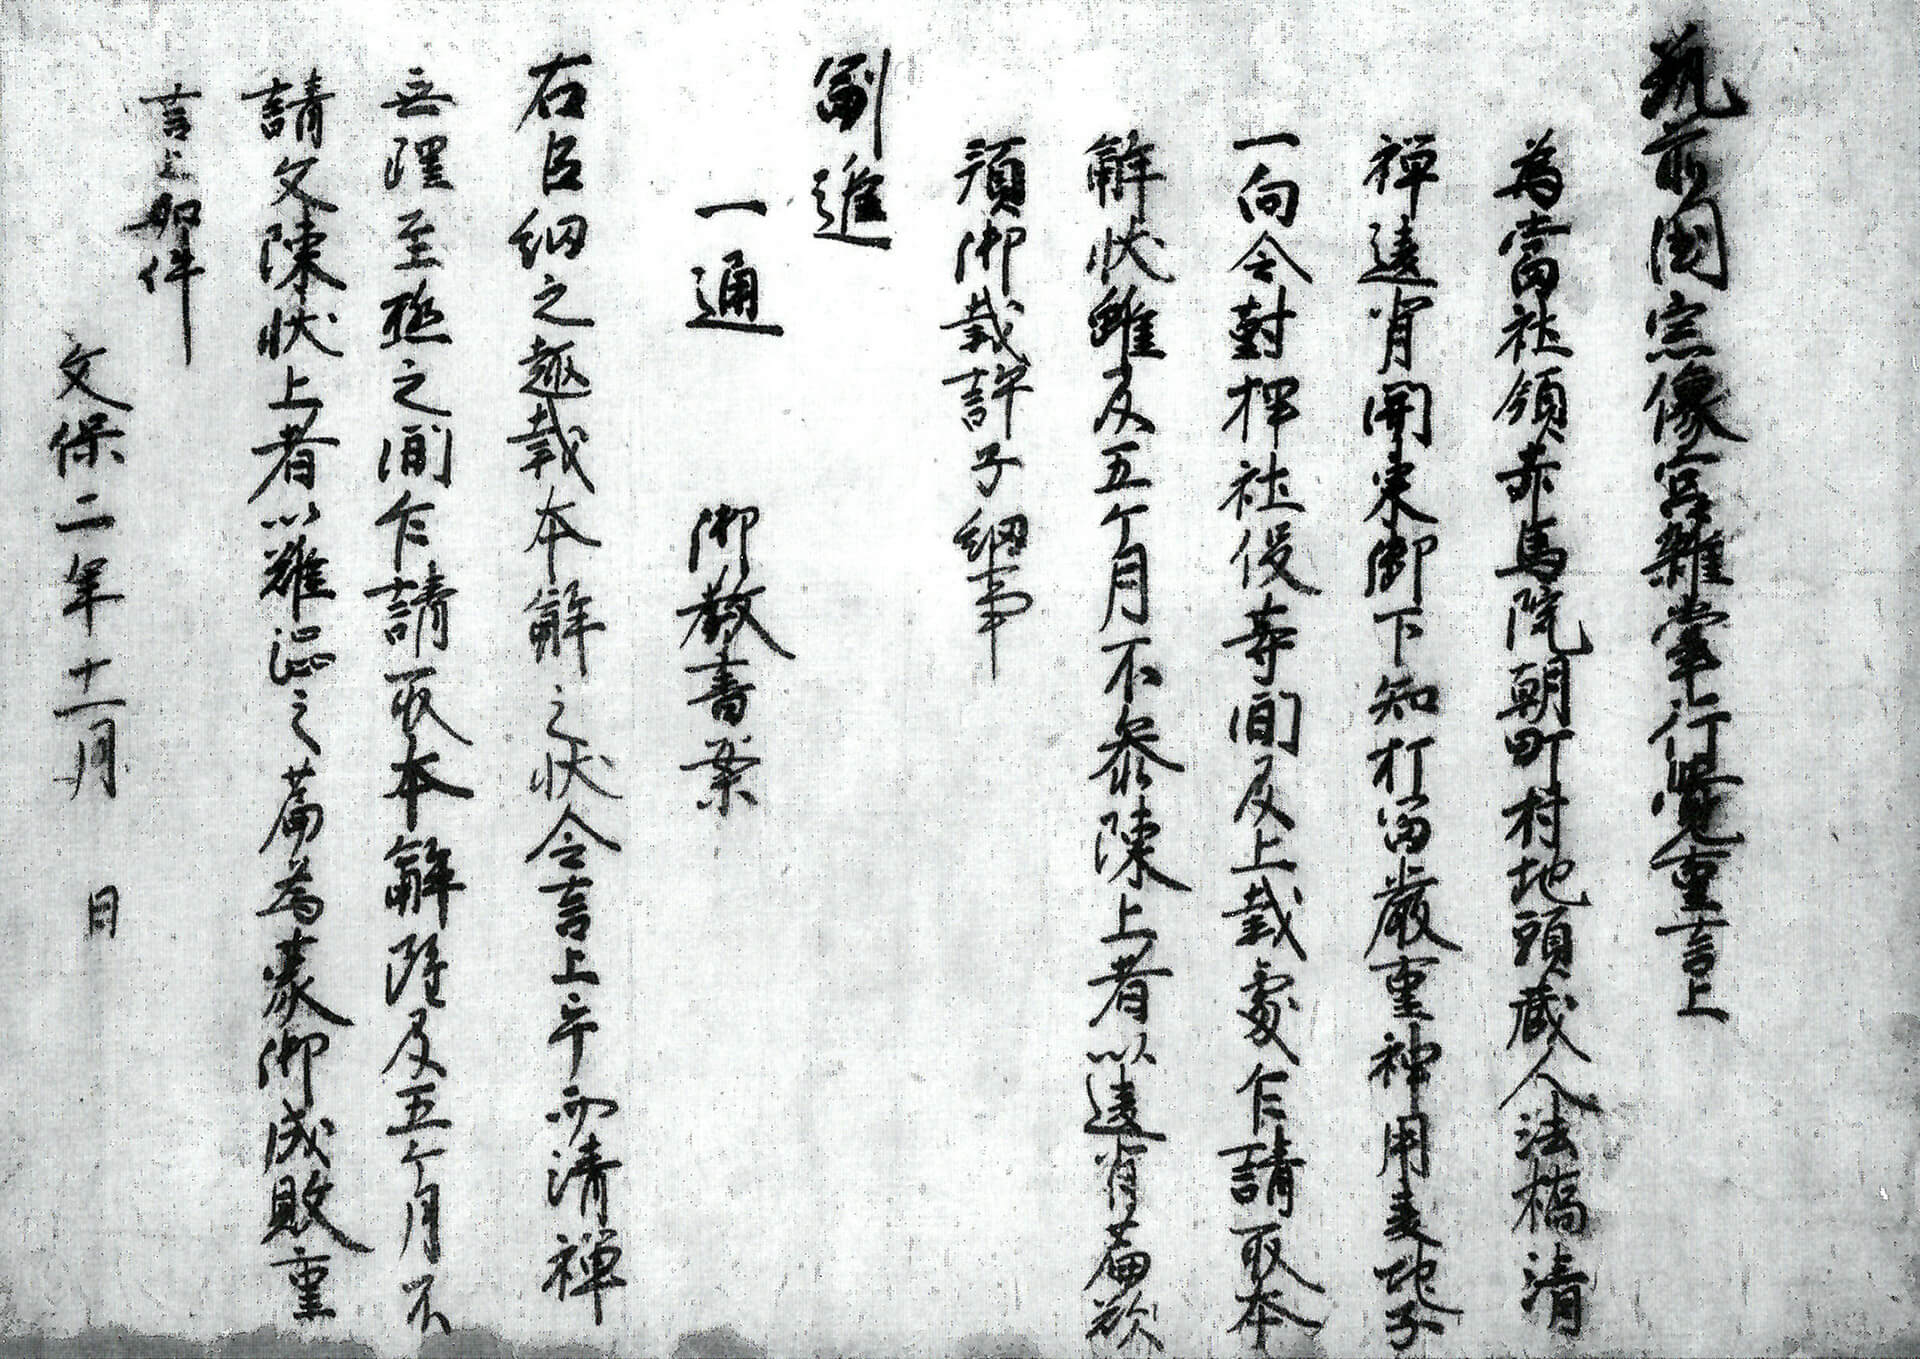 筑前国宗像宮雑掌行覚重言上
為当社領赤馬院朝町村地頭蔵人法橋清
禅違背関東御下知打留厳重神用麦地子
一向令対捍社役等間及上裁處乍請取本
解状雖及五ケ月不参陳上者以違背篇欲
預御裁許子細事
副進
一通　御教書案
右臣細之趣載本解之状令言上乎而清禅
無理至極之間乍請取本解陸及五ケ月不
請文陳状上者以難渋之篇為蒙御成敗重
言上如件
文保二年十一月　日